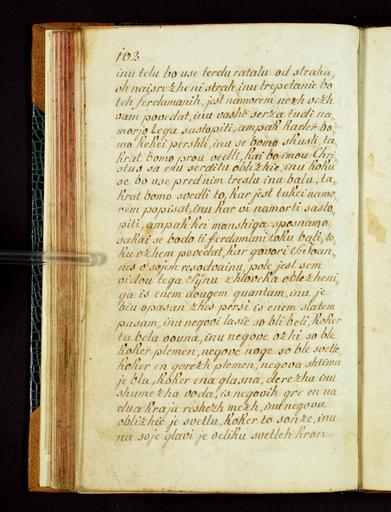 102
inu telu bo use terdu ratalu od straha,
oh naisrezheni strah inu trepetanie bo
teh ferdamanih, jest namorem nezh vezh
vam povedat, inu vashe serza tudi na„
morjo tega sastopiti, ampak kader bo„
mo kekei pershli, inu se bomo skusli, ta„
krat bomo prou vedli, kai bo imou Chri„
stus sa enu serditu oblizhie, inu koku
se bo use pred nim treslu inu balu, ta„
krat bomo svedli to, kar jest tukei namo„
rem popisat, inu kar vi namorti sasto„
piti, ampak kei manshiga sposnamo,
sakai se bodo ti ferdamani toku bali, to„
ku ozhem povedat, kar govori S. Joan„
nes v' sojem resodvainu, pole jest sem
vidou tega sijnu zhloveka oblezheni„
ga is enem dougem guantam, inu je
biu opasan zhes persi is enem slatem
pasam, inu negovi lasie so bli beli, koker
ta bela vouna, inu negove ozhi so ble
koker plemen, negove noge so ble svetle,
koker en gorezh plemen, negova shtima
je bla, koker ena glasna, derezha inu
shumezha voda, is negovih gre en na
dua kraja reshezh mezh, inu negovu
oblizhie je svetlu, koker to sonze, inu
na soje glavi je veliku svetleh kron